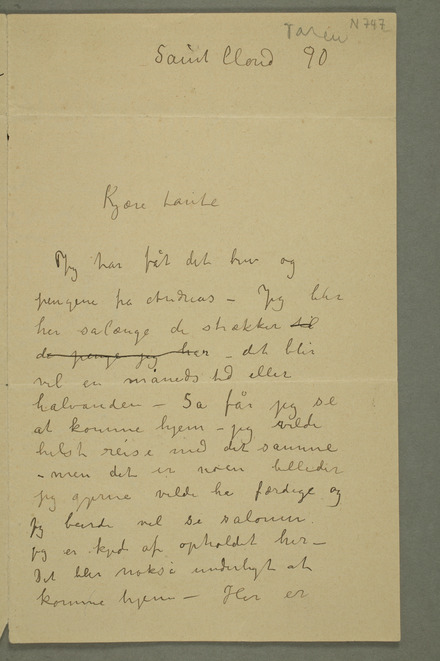 N 747
Saint Cloud 90
Kjære tante
Jeg har fåt dit brev og
pengene fra Andreas – Jeg blir
her salænge de strækker til
de penge jeg her – det blir
vel en måneds tid eller
halvanden – Så får jeg se
at komme hjem – jeg vilde
helst reise med det samme
– men det er noen billeder
jeg gjerne vilde ha færdige og
jeg burde vel se salonen.
jeg er kjed af opholdet her –
Det blir nokså underligt at
komme hjem – Her er